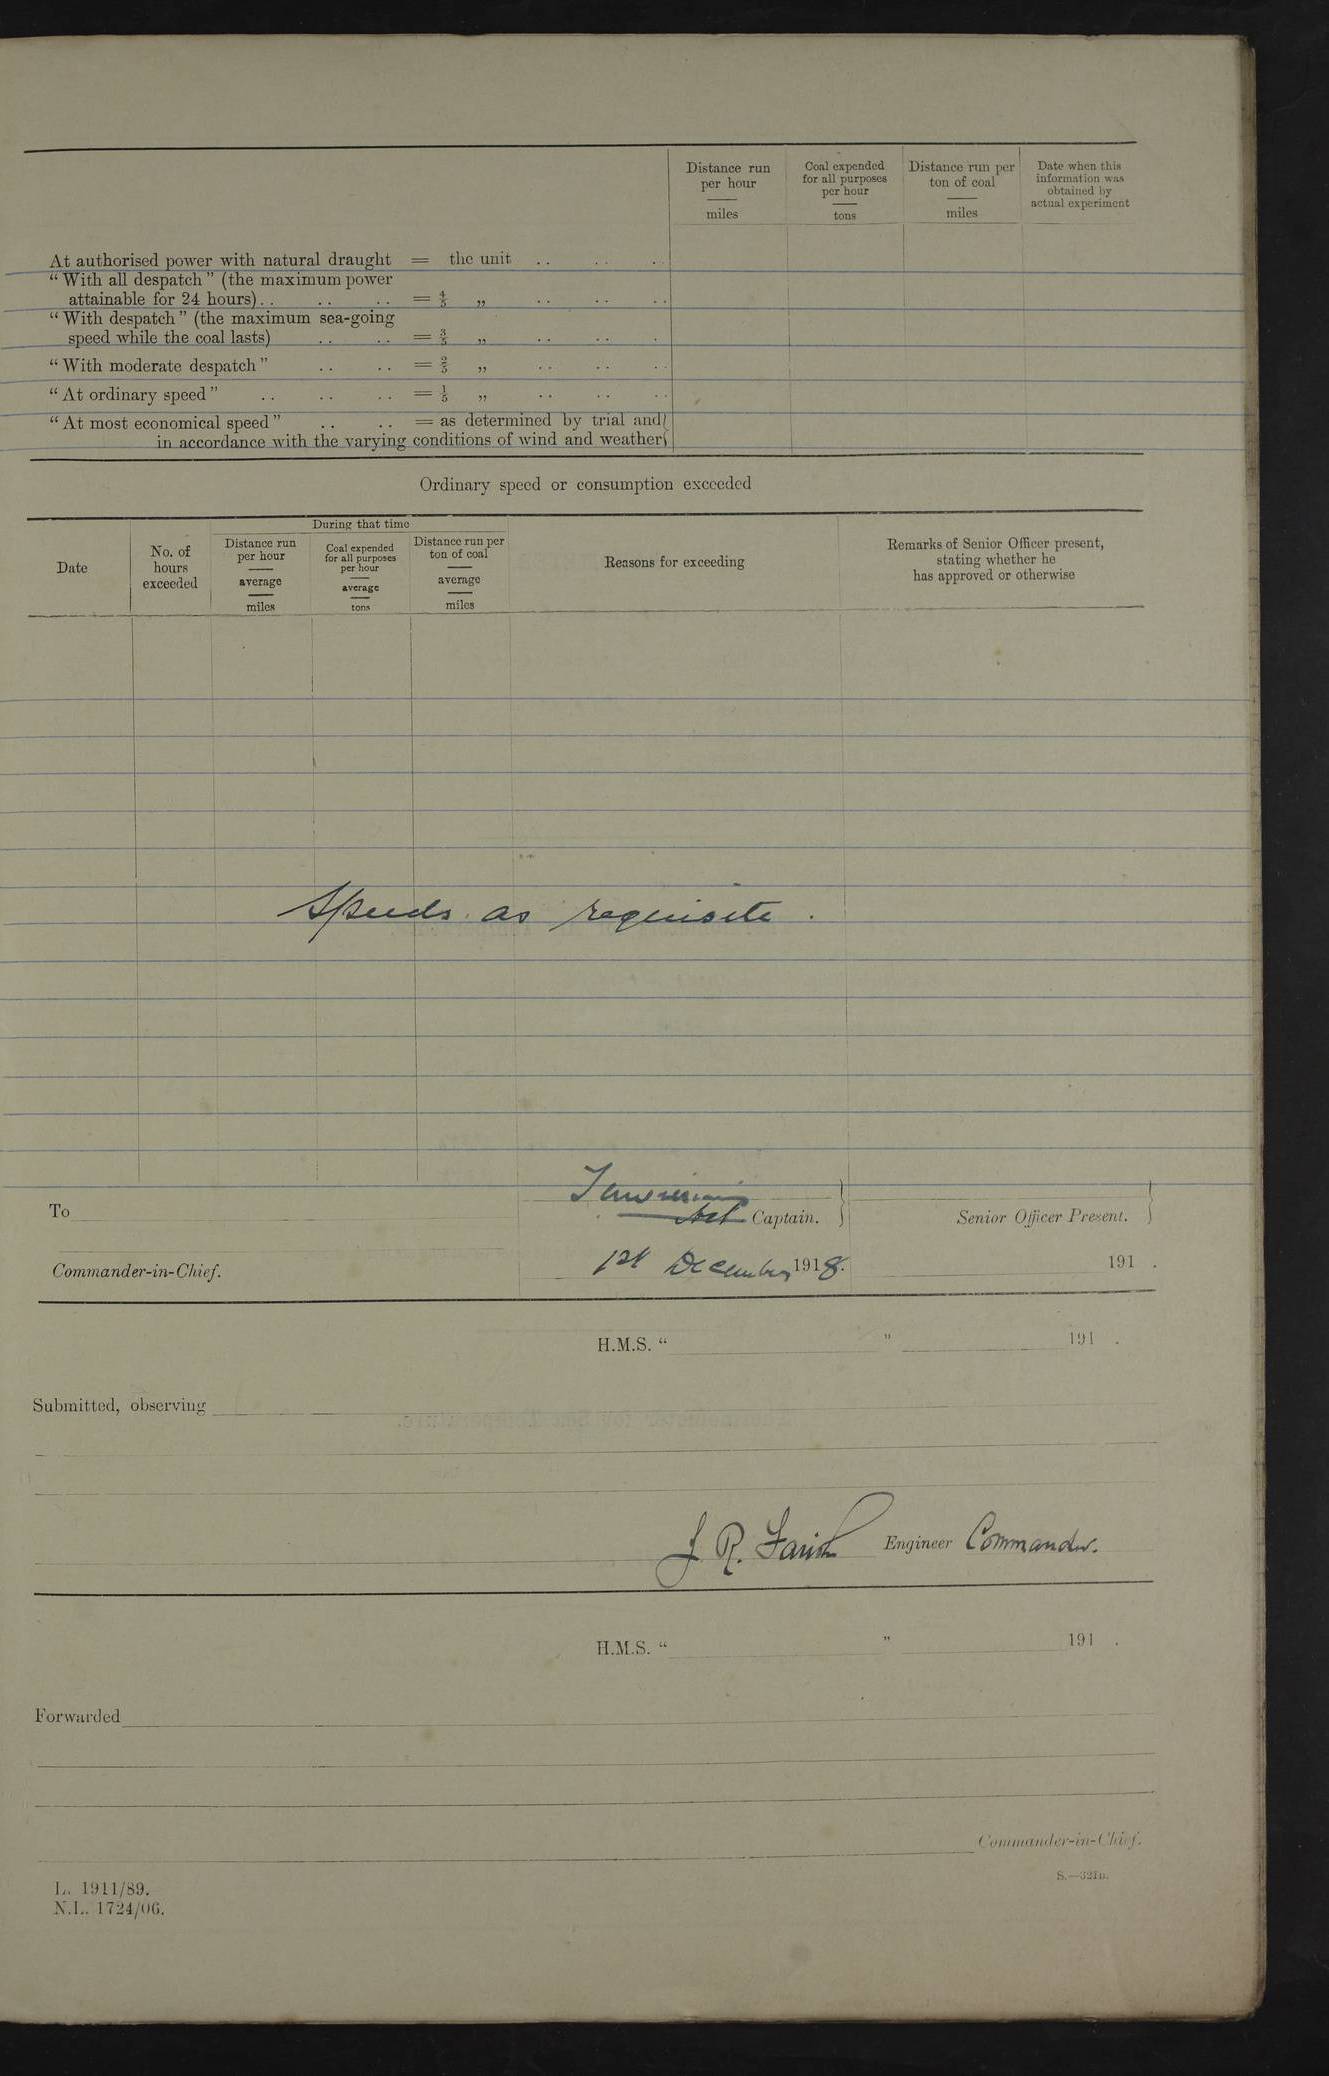 Distance run per hour — miles
Coal expended for all purposes per hour — tons
Distance run per ton of coal — miles
Date when this information was obtained by actual experiment
At authorised power with natural draught = the unit .. .. ..
“With all despatch” (the maximum power
attainable for 24 hours) .. .. .. = 4/5 „ .. .. ..
“With despatch” (the maximum sea-going
speed while the coal lasts) .. .. = 3/5 „ .. .. ..
“With moderate despatch” .. .. = 2/5 „ .. .. ..
“At ordinary speed” .. .. .. = 1/5 „ .. .. ..
“At most economical speed” .. .. = as determined by trial and
in accordance with the varying conditions of wind and weather
Ordinary speed or consumption exceeded
Date
No. of hours exceeded
During that time
Distance run per hour — average — miles
Coal expended for all purposes per hour — average — tons
Distance run per ton of coal — average — miles
Reasons for exceeding
Remarks of Senior Officer present, stating whether he has approved or otherwise
Speeds as requisite.
To
Captain.
Senior Officer Present.
Commander-in-Chief.
1st December 1918.
191 .
H.M.S. “ ” 191 .
Submitted, observing
J. R. Farish Engineer Commander.
H.M.S. “ ” 191 .
Forwarded
Commander-in-Chief.
L. 1911/89.
N.L. 1724/06.